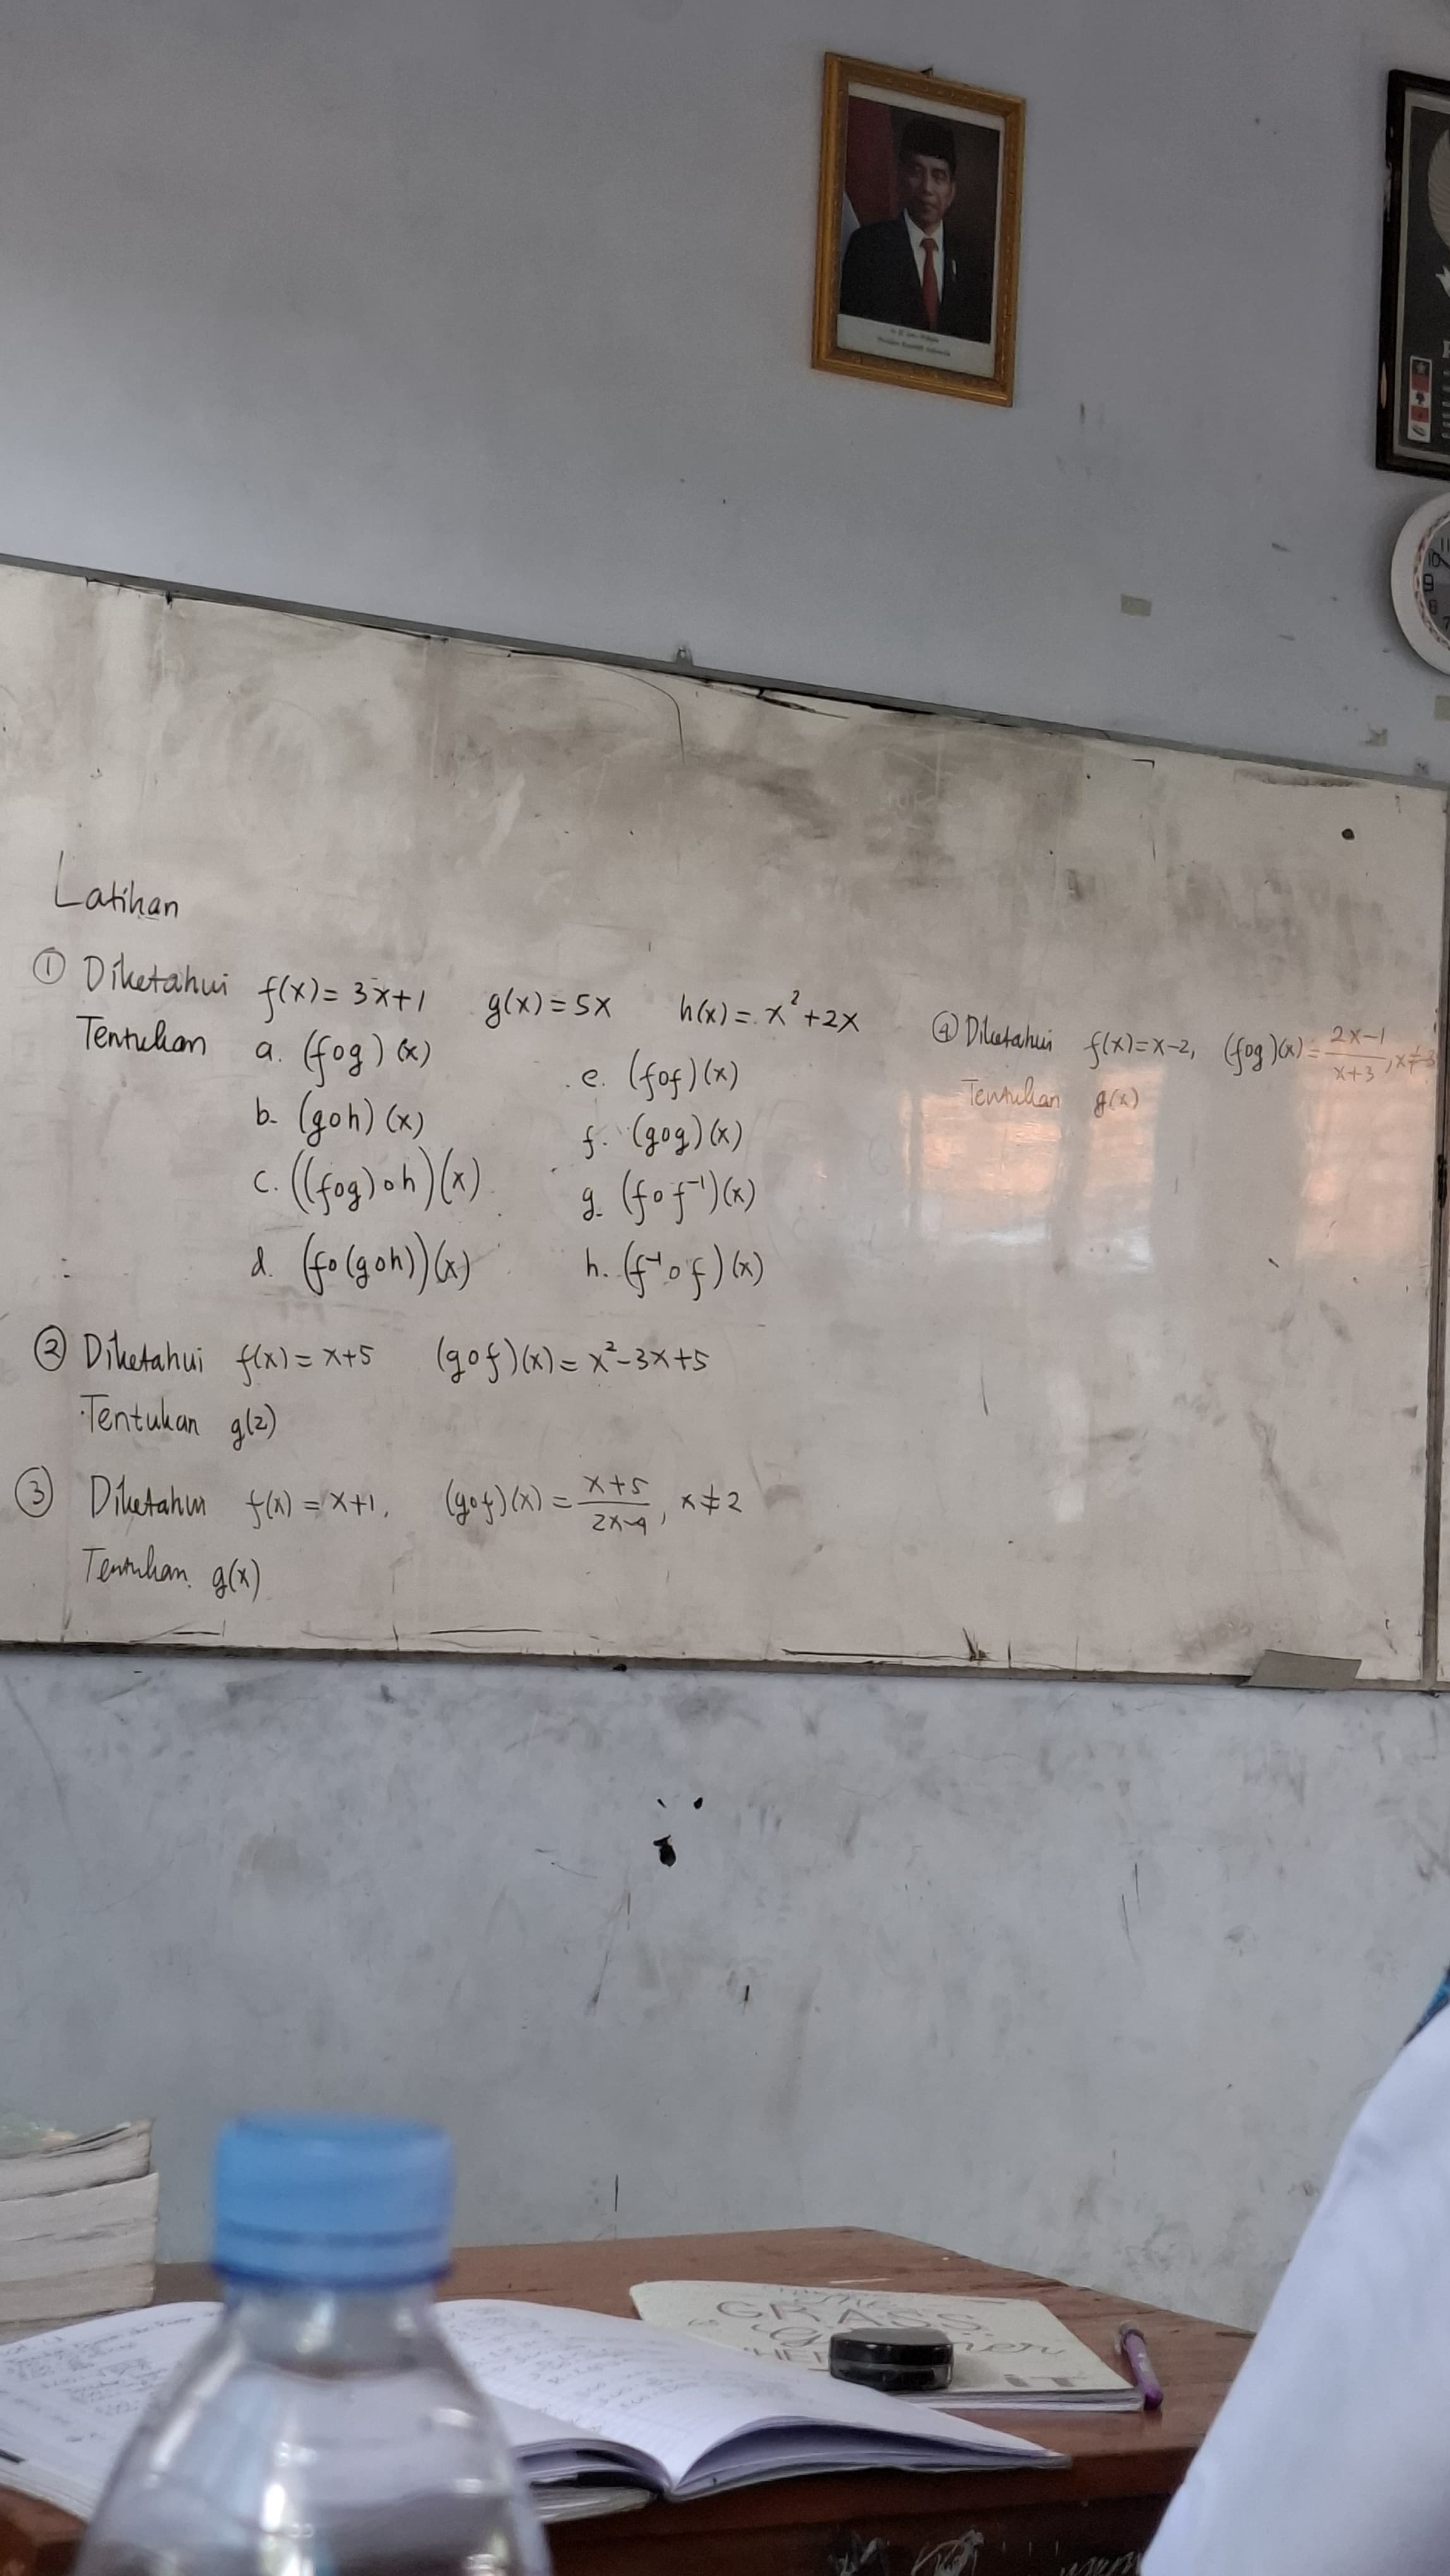 Latihan
① Diketahui f(x) = 3x+1 g(x) = 5x h(x) = x²+2x
Tentukan a. (fog)(x)
b. (goh)(x)
c. ((fog)oh)(x)
d. (fo(goh))(x)
e. (fof)(x)
f. (gog)(x)
g. (fof⁻¹)(x)
h. (f⁻¹of)(x)
② Diketahui f(x) = x+5 (gof)(x) = x²-3x+5
Tentukan g(2)
③ Diketahui f(x) = x+1, (gof)(x) = x+5/2x-4, x≠2
Tentukan g(x)
④ Diketahui f(x)=x-2, (fog)(x)= 2x-1/x+3, x≠-3
Tentukan g(x)
10
9
8
7
GRASS
iT